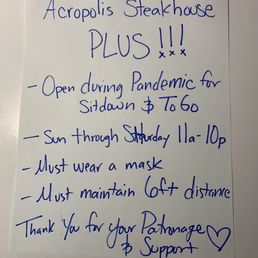 Acropolis Steakhouse
PLUS!!!
xxx
- Open during Pandemic for
Sitdown & ToGo
- Sun through Saturday 11a-10p
- Must wear a mask
- Must maintain 6ft distance
Thank You for your Patronage
& Support ♡